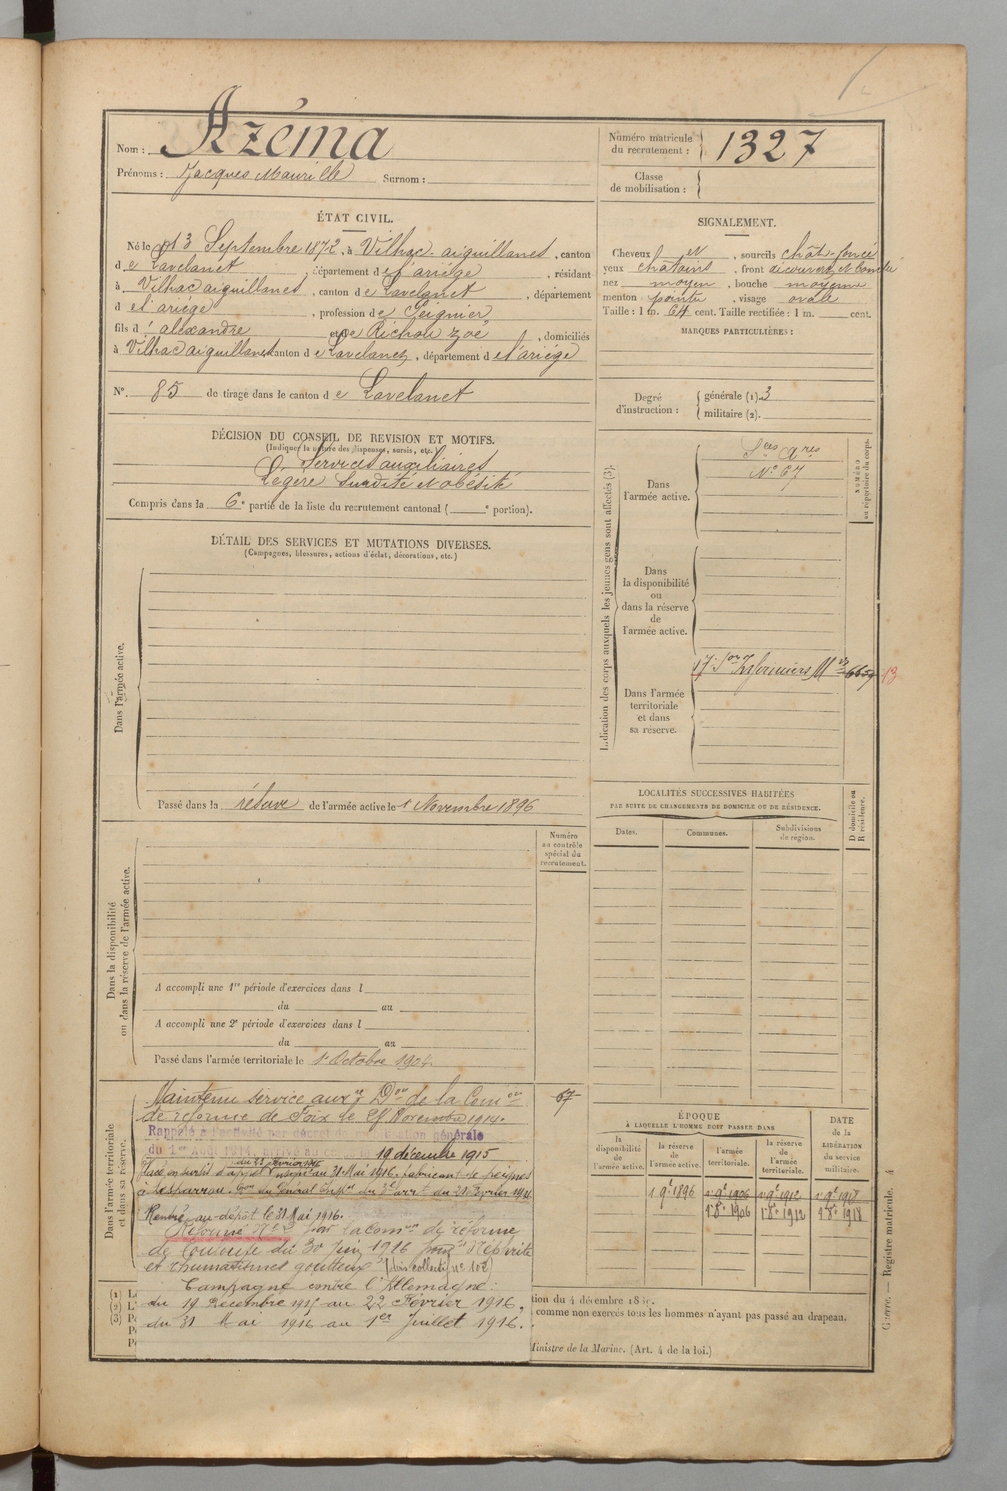 Nom : Azéma
Prénoms : Jacques Maurille Surnom :
Numéro matricule
du recrutement : 1327
Classe
de mobilisation :
ÉTAT CIVIL.
Né le 13 Septembre 1872, à Vilhac-aiguillanes, canton
de Lavelanet, département de l'ariége, résidant
à Vilhac aiguillanes, canton de Lavelanet, département
de l'ariége, profession de Peignier
fils d'alexandre et de Richou Zoé, domiciliés
à Vilhac aiguillanes canton de Lavelanet, département de l'ariége
N° 85 de tirage dans le canton de Lavelanet
SIGNALEMENT.
Cheveux et, sourcils chât. foncé
yeux chatains, front découvert et bombé
nez moyen, bouche moyenne
menton pointu, visage ovale
Taille : 1 m. 64 cent. Taille rectifiée : 1 m. cent.
MARQUES PARTICULIÈRES :
Degré
d'instruction :
générale (1). 3
militaire (2).
DÉCISION DU CONSEIL DE REVISION ET MOTIFS.
(Indiquer la nature des dispenses, sursis, etc.
Services auxiliaires
Légère surdité et obésité
Compris dans la 6e partie de la liste du recrutement cantonal ( e portion).
DÉTAIL DES SERVICES ET MUTATIONS DIVERSES.
(Campagnes, blessures, actions d'éclat, décorations, etc.)
Dans l'armée active.
Passé dans la réserve de l'armée active le 1 Novembre 1896
Indication des corps auxquels les jeunes gens sont affectés (3).
Dans
l'armée active.
Sces
N° 67
NUMÉRO
au répertoire du corps.
Dans
la disponibilité
ou
dans la réserve
de
l'armée active.
Dans l'armée
territoriale
et dans
sa réserve.
17e Son Infirmiers
13
LOCALITÉS SUCCESSIVES HABITÉES
PAR SUITE DE CHANGEMENTS DE DOMICILE OU DE RÉSIDENCE.
Dates.
Communes.
Subdivisions
de région.
D domicile ou
R résidence.
Numéro
au contrôle
spécial du
recrutement.
Dans la disponibilité
ou dans la réserve de l'armée active.
A accompli une 1re période d'exercices dans l
du au
A accompli une 2e période d'exercices dans l
du au
Passé dans l'armée territoriale le 1er Octobre 1904
67
Dans l'armée territoriale
et dans sa réserve.
Maintenu service auxre Don de la Comon
de réforme de Foix le Novembre 1914.
Rappelé à l'activité par décret de mobilisation générale
du 1er Août 1914. Arrivé au corps le 19 décembre 1915
du 22 Février 1916
Placé en sursis d'appel jusqu'au 31 Mai 1916. fabricant de peignes
à Lesparrou.
Rentré au dépôt le 31 Mai 1916.
Réformé N° 2 par la Comon de réforme
de Toulouse du 30 Juin 1916 pour "Néphrite
et rhumatismes goutteux" (avis collectif n° 102)
Campagne contre l'Allemagne :
du 19 Décembre 1915 au 22 Février 1916,
du 31 Mai 1916 au 1er Juillet 1916.
ÉPOQUE
À LAQUELLE L'HOMME DOIT PASSER DANS
la
disponibilité
de
l'armée active.
la réserve
de
l'armée active.
l'armée
territoriale.
la réserve
de
l'armée
territoriale.
DATE
de la
LIBÉRATION
du service
militaire.
1 9e 1896 1 9e 1906 1 9e 1912 1 9e 1918
1er 8e 1906 1er 8e 1912 1er 8e 1918
(1)
(2)
(3)
tion du 4 décembre
comme non exercés tous les hommes n'ayant pas passé au drapeau.
Ministre de la Marine. (Art. 4 de la loi.)
Guerre. — Registre matricule. 4